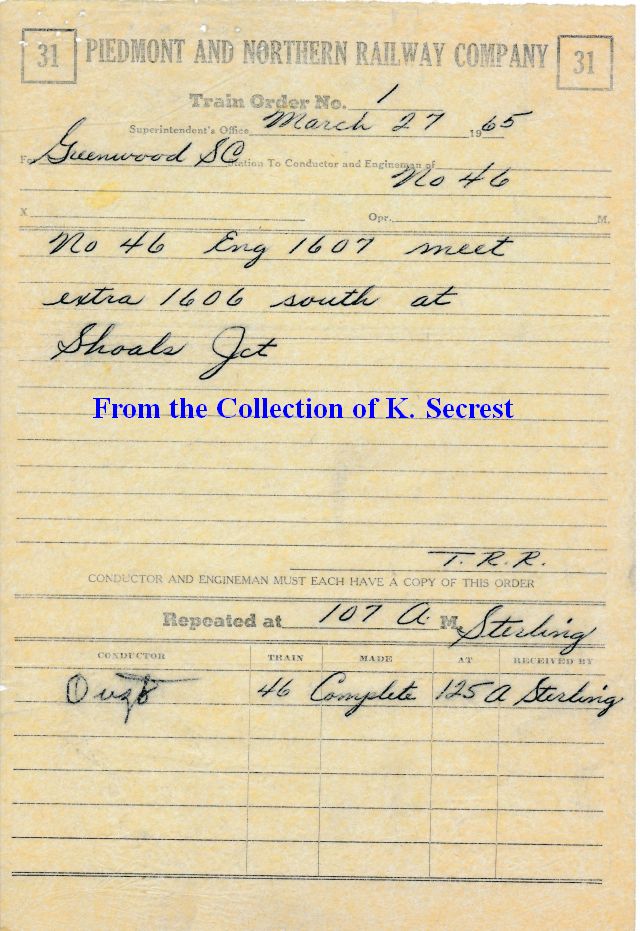 31 PIEDMONT AND NORTHERN RAILWAY COMPANY 31
Train Order No. 1
Superintendent's Office March 27 1965
For Greenwood SC Station To Conductor and Engineman of No 46
X Opr. M.
No 46 Eng 1607 meet
extra 1606 south at
Shoals Jct
From the Collection of K. Secrest
T. R. R.
CONDUCTOR AND ENGINEMAN MUST EACH HAVE A COPY OF THIS ORDER
Repeated at 107 A. M. Sterling
CONDUCTOR TRAIN MADE AT RECEIVED BY
46 Complete 125 A Sterling